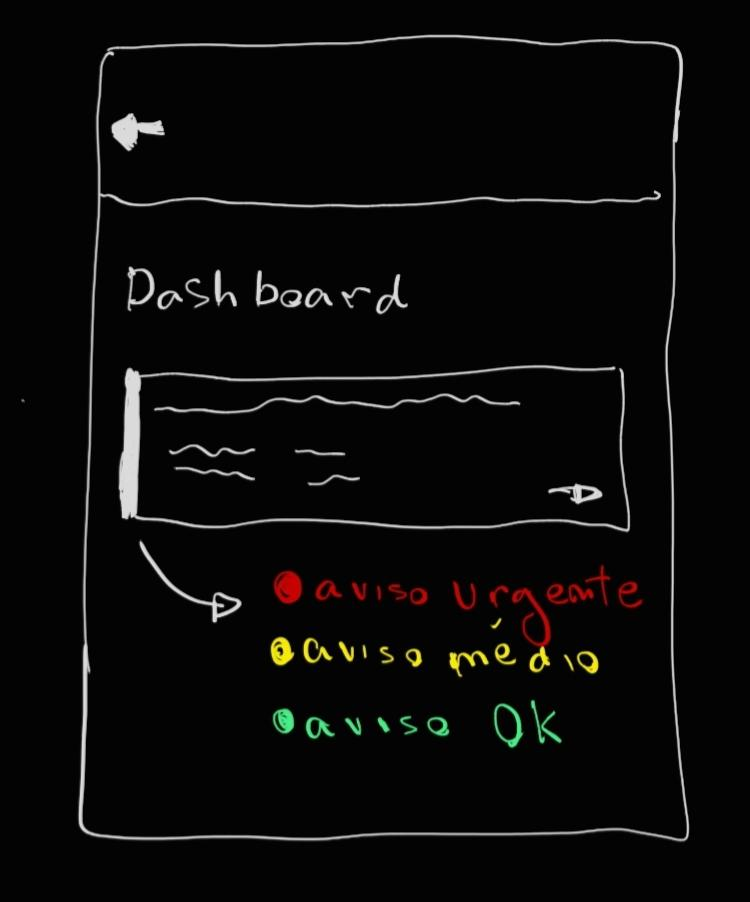 Dashboard
aviso urgente
aviso médio
aviso OK